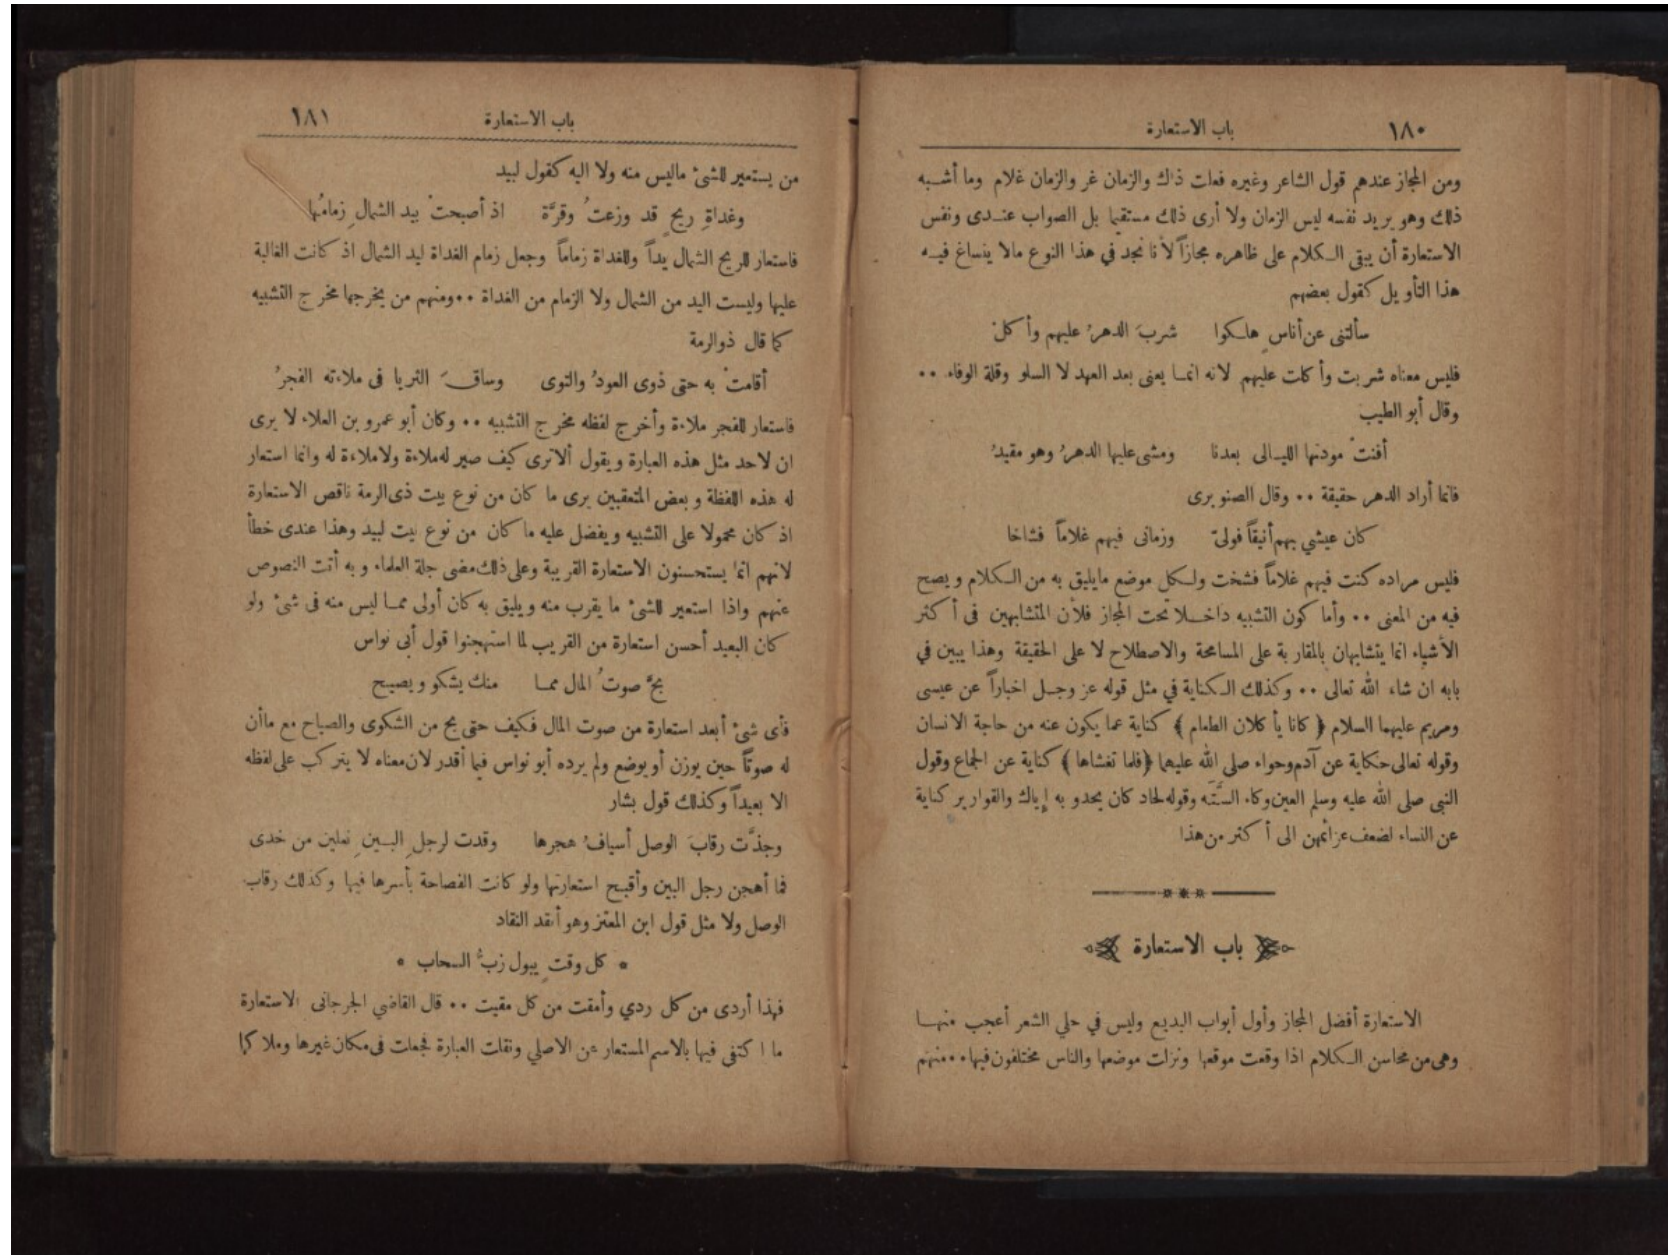 ١٨٠
باب الاستعارة
ومن المجاز عندهم قول الشاعر وغيره فعلت ذاك والزمان غر والزمان غلام وما أشبه
ذلك وهو يريد نفسه ليس الزمان ولا أرى ذلك مستقيما بل الصواب عندى ونفس
الاستعارة أن يبقى الكلام على ظاهره مجازاً لأنا نجد في هذا النوع مالا ينساغ فيه
هذا التأويل كقول بعضهم
سألتنى عن أناسٍ هلكوا شربَ الدهرُ عليهم وأكلْ
فليس معناه شربت وأكلت عليهم لانه انما يعنى بعد العهد لا السلو وقلة الوفاء ..
وقال أبو الطيب
أفنتْ مودتها الليالى بعدنا ومشى عليها الدهرُ وهو مقيدُ
فانما أراد الدهر حقيقة .. وقال الصنوبرى
كان عيشي بهم أنيقاً فولىّ وزمانى فيهم غلاماً فشاخا
فليس مراده كنت فيهم غلاماً فشخت ولكل موضع مايليق به من الكلام ويصح
فيه من المعنى .. وأما كون التشبيه داخلا تحت المجاز فلأن المتشابهين فى أكثر
الأشياء انما يتشابهان بالمقاربة على المسامحة والاصطلاح لا على الحقيقة وهذا يبين في
بابه ان شاء الله تعالى .. وكذلك الكناية في مثل قوله عز وجل اخباراً عن عيسى
ومريم عليهما السلام ﴿ كانا يأكلان الطعام ﴾ كناية عما يكون عنه من حاجة الانسان
وقوله تعالى حكاية عن آدم وحواء صلى الله عليهما ﴿فلما تغشاها ﴾ كناية عن الجماع وقول
النبى صلى الله عليه وسلم العين وكاء السَّتَه وقوله لحاد كان يحدو به إياك والقوارير كناية
عن النساء لضعف عزائمهن الى أكثر من هذا
باب الاستعارة
الاستعارة أفضل المجاز وأول أبواب البديع وليس في حلي الشعر أعجب منها
وهى من محاسن الكلام اذا وقعت موقعها ونزلت موضعها والناس مختلفون فيها .. منهم
باب الاستعارة
١٨١
من يستعير للشئ ماليس منه ولا اليه كقول لبيد
وغداةِ ريحٍ قد وزعتُ وقرَّة اذ أصبحتْ بيد الشمالِ زمامُها
فاستعار للريح الشمال يداً وللغداة زماماً وجعل زمام الغداة ليد الشمال اذ كانت الغالبة
عليها وليست اليد من الشمال ولا الزمام من الغداة .. ومنهم من يخرجها مخرج التشبيه
كما قال ذوالرمة
أقامتْ به حتى ذوى العودُ والتوى وساقَ الثريا فى ملاءته الفجرُ
فاستعار للفجر ملاءة وأخرج لفظه مخرج التشبيه .. وكان أبو عمرو بن العلاء لا يرى
ان لاحد مثل هذه العبارة ويقول ألاترى كيف صير له ملاءة ولا ملاءة له وانما استعار
له هذه اللفظة وبعض المتعقبين يرى ما كان من نوع بيت ذى الرمة ناقص الاستعارة
اذ كان محمولا على التشبيه ويفضل عليه ما كان من نوع بيت لبيد وهذا عندى خطأ
لانهم انما يستحسنون الاستعارة القريبة وعلى ذلك مضى جلة العلماء وبه أتت النصوص
عنهم واذا استعير للشئ ما يقرب منه ويليق به كان أولى مما ليس منه فى شئ ولو
كان البعيد أحسن استعارة من القريب لما استهجنوا قول أبى نواس
بحَّ صوتُ المال مما منك يشكو ويصيح
فأى شئ أبعد استعارة من صوت المال فكيف حتى بح من الشكوى والصياح مع ماأن
له صوتاً حين يوزن أو يوضع ولم يرده أبو نواس فيما أقدر لان معناه لا يتركب على لفظه
الا بعيداً وكذلك قول بشار
وجذَّت رقابَ الوصل أسيافُ هجرها وقدت لرجلِ البينِ نعلين من خدى
فما أهجن رجل البين وأقبح استعارتها ولو كانت الفصاحة بأسرها فيها وكذلك رقاب
الوصل ولا مثل قول ابن المعتز وهو أنقد النقاد
* كل وقتٍ يبول زبُّ السحاب *
فهذا أردى من كل ردي وأمقت من كل مقيت .. قال القاضي الجرجانى الاستعارة
ما اكتفى فيها بالاسم المستعار عن الاصلي ونقلت العبارة فجعلت فى مكان غيرها وملاكها